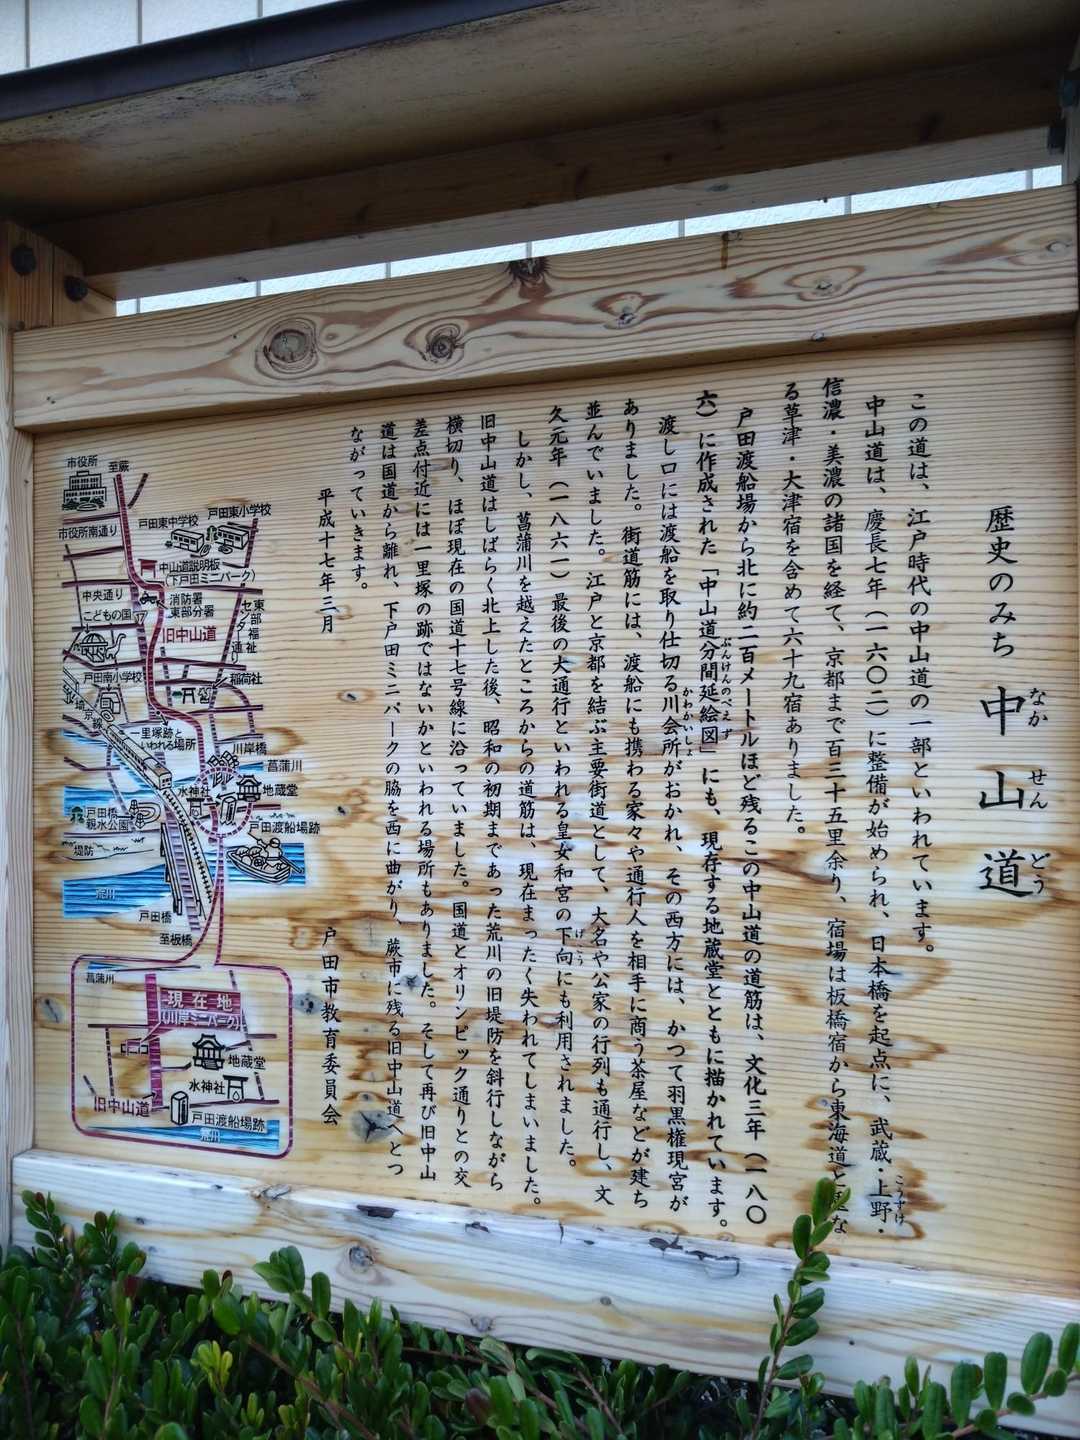 歴史のみち 中山道
なか せん どう
この道は、江戸時代の中山道の一部といわれています。
中山道は、慶長七年（一六〇二）に整備が始められ、日本橋を起点に、武蔵・上野・
こうずけ
信濃・美濃の諸国を経て、京都まで百三十五里余り、宿場は板橋宿から東海道と重な
る草津・大津宿を含めて六十九宿ありました。
戸田渡船場から北に約二百メートルほど残るこの中山道の道筋は、文化三年（一八〇
六）に作成された「中山道分間延絵図」にも、現存する地蔵堂とともに描かれています。
ぶんけんのべえず
渡し口には渡船を取り仕切る川会所がおかれ、その西方には、かつて羽黒権現宮が
かわかいしょ
ありました。街道筋には、渡船にも携わる家々や通行人を相手に商う茶屋などが建ち
並んでいました。江戸と京都を結ぶ主要街道として、大名や公家の行列も通行し、文
久元年（一八六一）最後の大通行といわれる皇女和宮の下向にも利用されました。
げこう
しかし、菖蒲川を越えたところからの道筋は、現在まったく失われてしまいました。
旧中山道はしばらく北上した後、昭和の初期まであった荒川の旧堤防を斜行しながら
横切り、ほぼ現在の国道十七号線に沿っていました。国道とオリンピック通りとの交
差点付近には一里塚の跡ではないかといわれる場所もありました。そして再び旧中山
道は国道から離れ、下戸田ミニパークの脇を西に曲がり、蕨市に残る旧中山道へとつ
ながっていきます。
平成十七年三月
戸田市教育委員会
市役所
至蕨
戸田東小学校
戸田東中学校
市役所南通り
中山道説明板
（下戸田ミニパーク）
中央通り
消防署
東部分署
こどもの国
17
東部福祉
センター通り
旧中山道
戸田南小学校
稲荷社
埼京線
一里塚跡と
いわれる場所
川岸橋
菖蒲川
水神社
地蔵堂
戸田橋
親水公園
戸田渡船場跡
堤防
荒川
戸田橋
至板橋
菖蒲川
現在地
（川岸ミニパーク）
地蔵堂
水神社
旧中山道
戸田渡船場跡
荒川